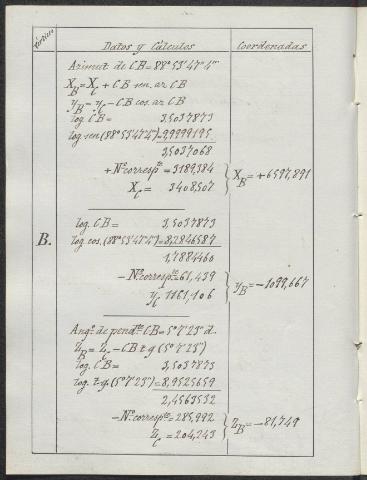 Vértices
Datos y Cálculos
Coordenadas
Azimut de CB = 88°53'47'4"
X_B = X_C + CB sen. az CB
y_B = y_C - CB cos. az CB
log CB = 3,5037873
log sen (88°53'47'4") = 9,9999195
3,5037068
+ Nº corresp.te = 3189,384
X_C = 3408,507
X_B = +6597,891
B.
log. CB = 3,5037873
log. cos. (88°53'47'4") = 8,2846587
1,7884460
- Nº corresp.te = 61,439
y_C 1161,106
y_B = -1099,667
Ang.º de pend.te CB = 5°7'23" d.
Z_B = Z_C - CB t g (5°7'23")
log. CB = 3,5037873
log. t.g. (5°7'23") = 8,9525659
2,4563532
- Nº corresp.te = 285,992
Z_C = 204,243
Z_B = -81,749